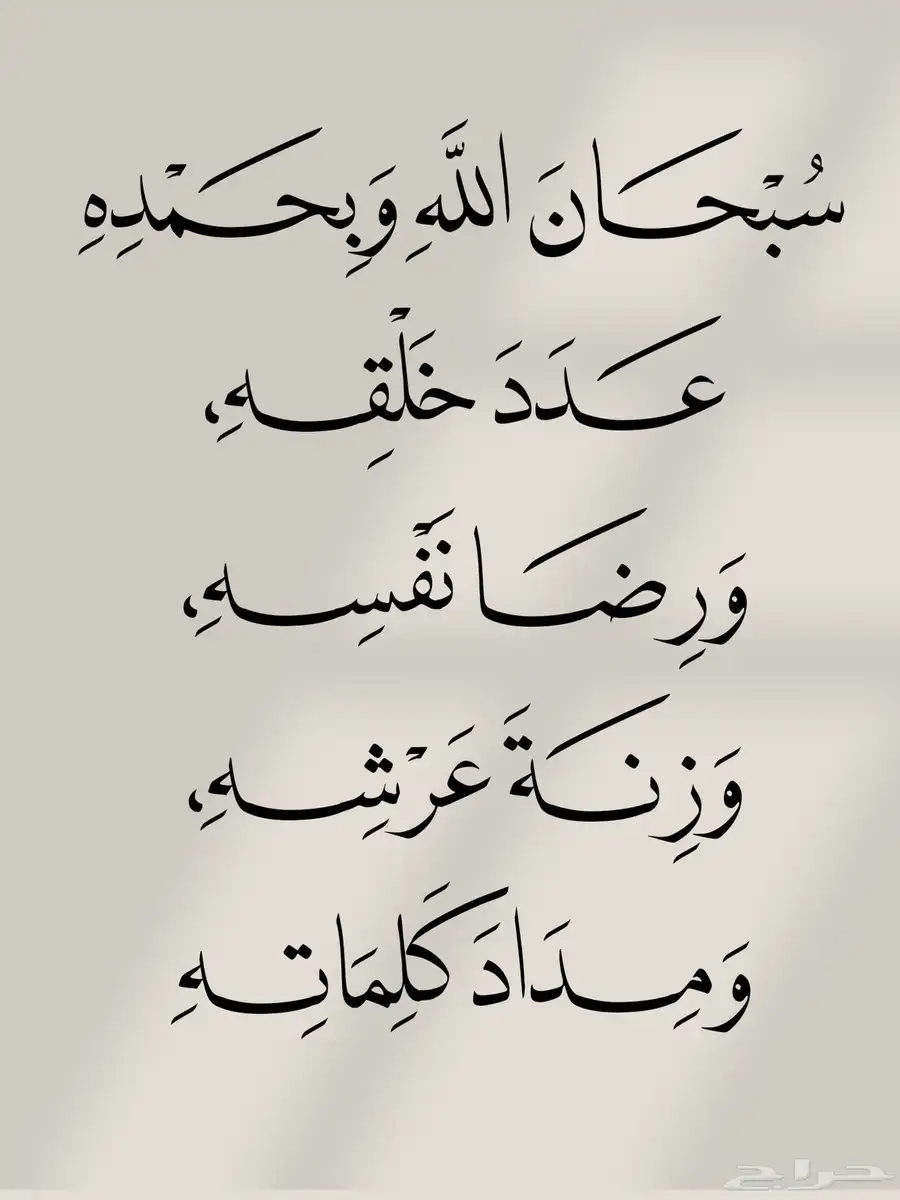 سُبْحَانَ اللَّهِ وَبِحَمْدِهِ
عَدَدَ خَلْقِهِ،
وَرِضَا نَفْسِهِ،
وَزِنَةَ عَرْشِهِ،
وَمِدَادَ كَلِمَاتِهِ
حراج